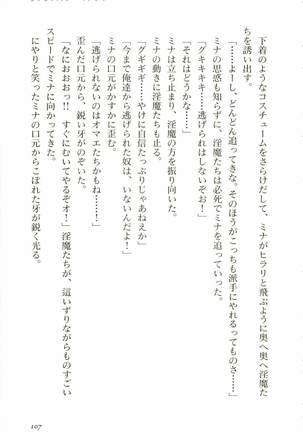 下着のようなコスチュームをさらけだして、ミナがヒラリと飛ぶように奥へ奥へ淫魔た
ちを誘い出す。
「……よーし、どんどん追ってきな。そのほうがこっちも派手にやれるってものさ……」
ミナの思惑も知らずに、淫魔たちは必死でミナを追っていった。
「グキキキキ……逃げられはしないぞお！」
「それはどうかな……」
ミナは立ち止まり、淫魔の方を振り向いた。
ミナの動きに淫魔たちも止る。
「グギギギ……やけに自信たっぷりじゃあねえか」
「今まで俺達から逃げられた奴は、いないんだよ！」
ミナの口元がかすかに歪む。
「逃げられないのはオマエたちかもね……！」
歪んだ口元から、鋭い牙がのぞいた。
「なにおおおっ!!　すぐにむいてやるぞオ！」淫魔たちが、這いずりながらものすごい
スピードでミナに向かってきた。
にやりと笑ったミナの口元からこぼれた牙が鋭く光る。
107